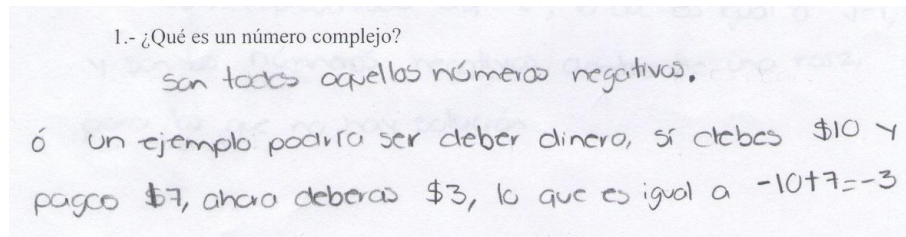 1.- ¿Qué es un número complejo?
Son todos aquellos números negativos.
ó un ejemplo podría ser deber dinero, sí debes $10 y
pagas $7, ahora deberas $3, lo que es igual a -10+7=-3